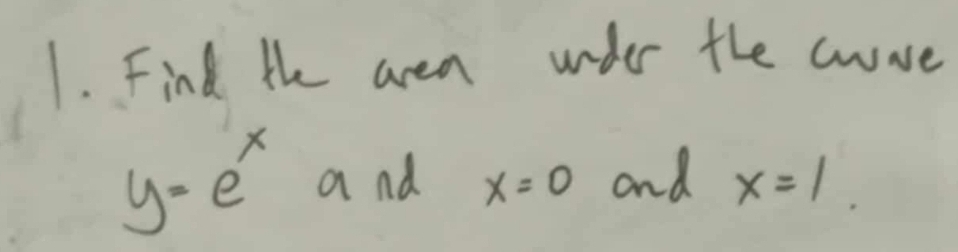 1. Find the area under the curve
y=e^x and x=0 and x=1.